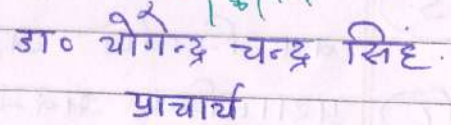 डा० योगेन्द्र चन्द्र सिंह.
प्राचार्य